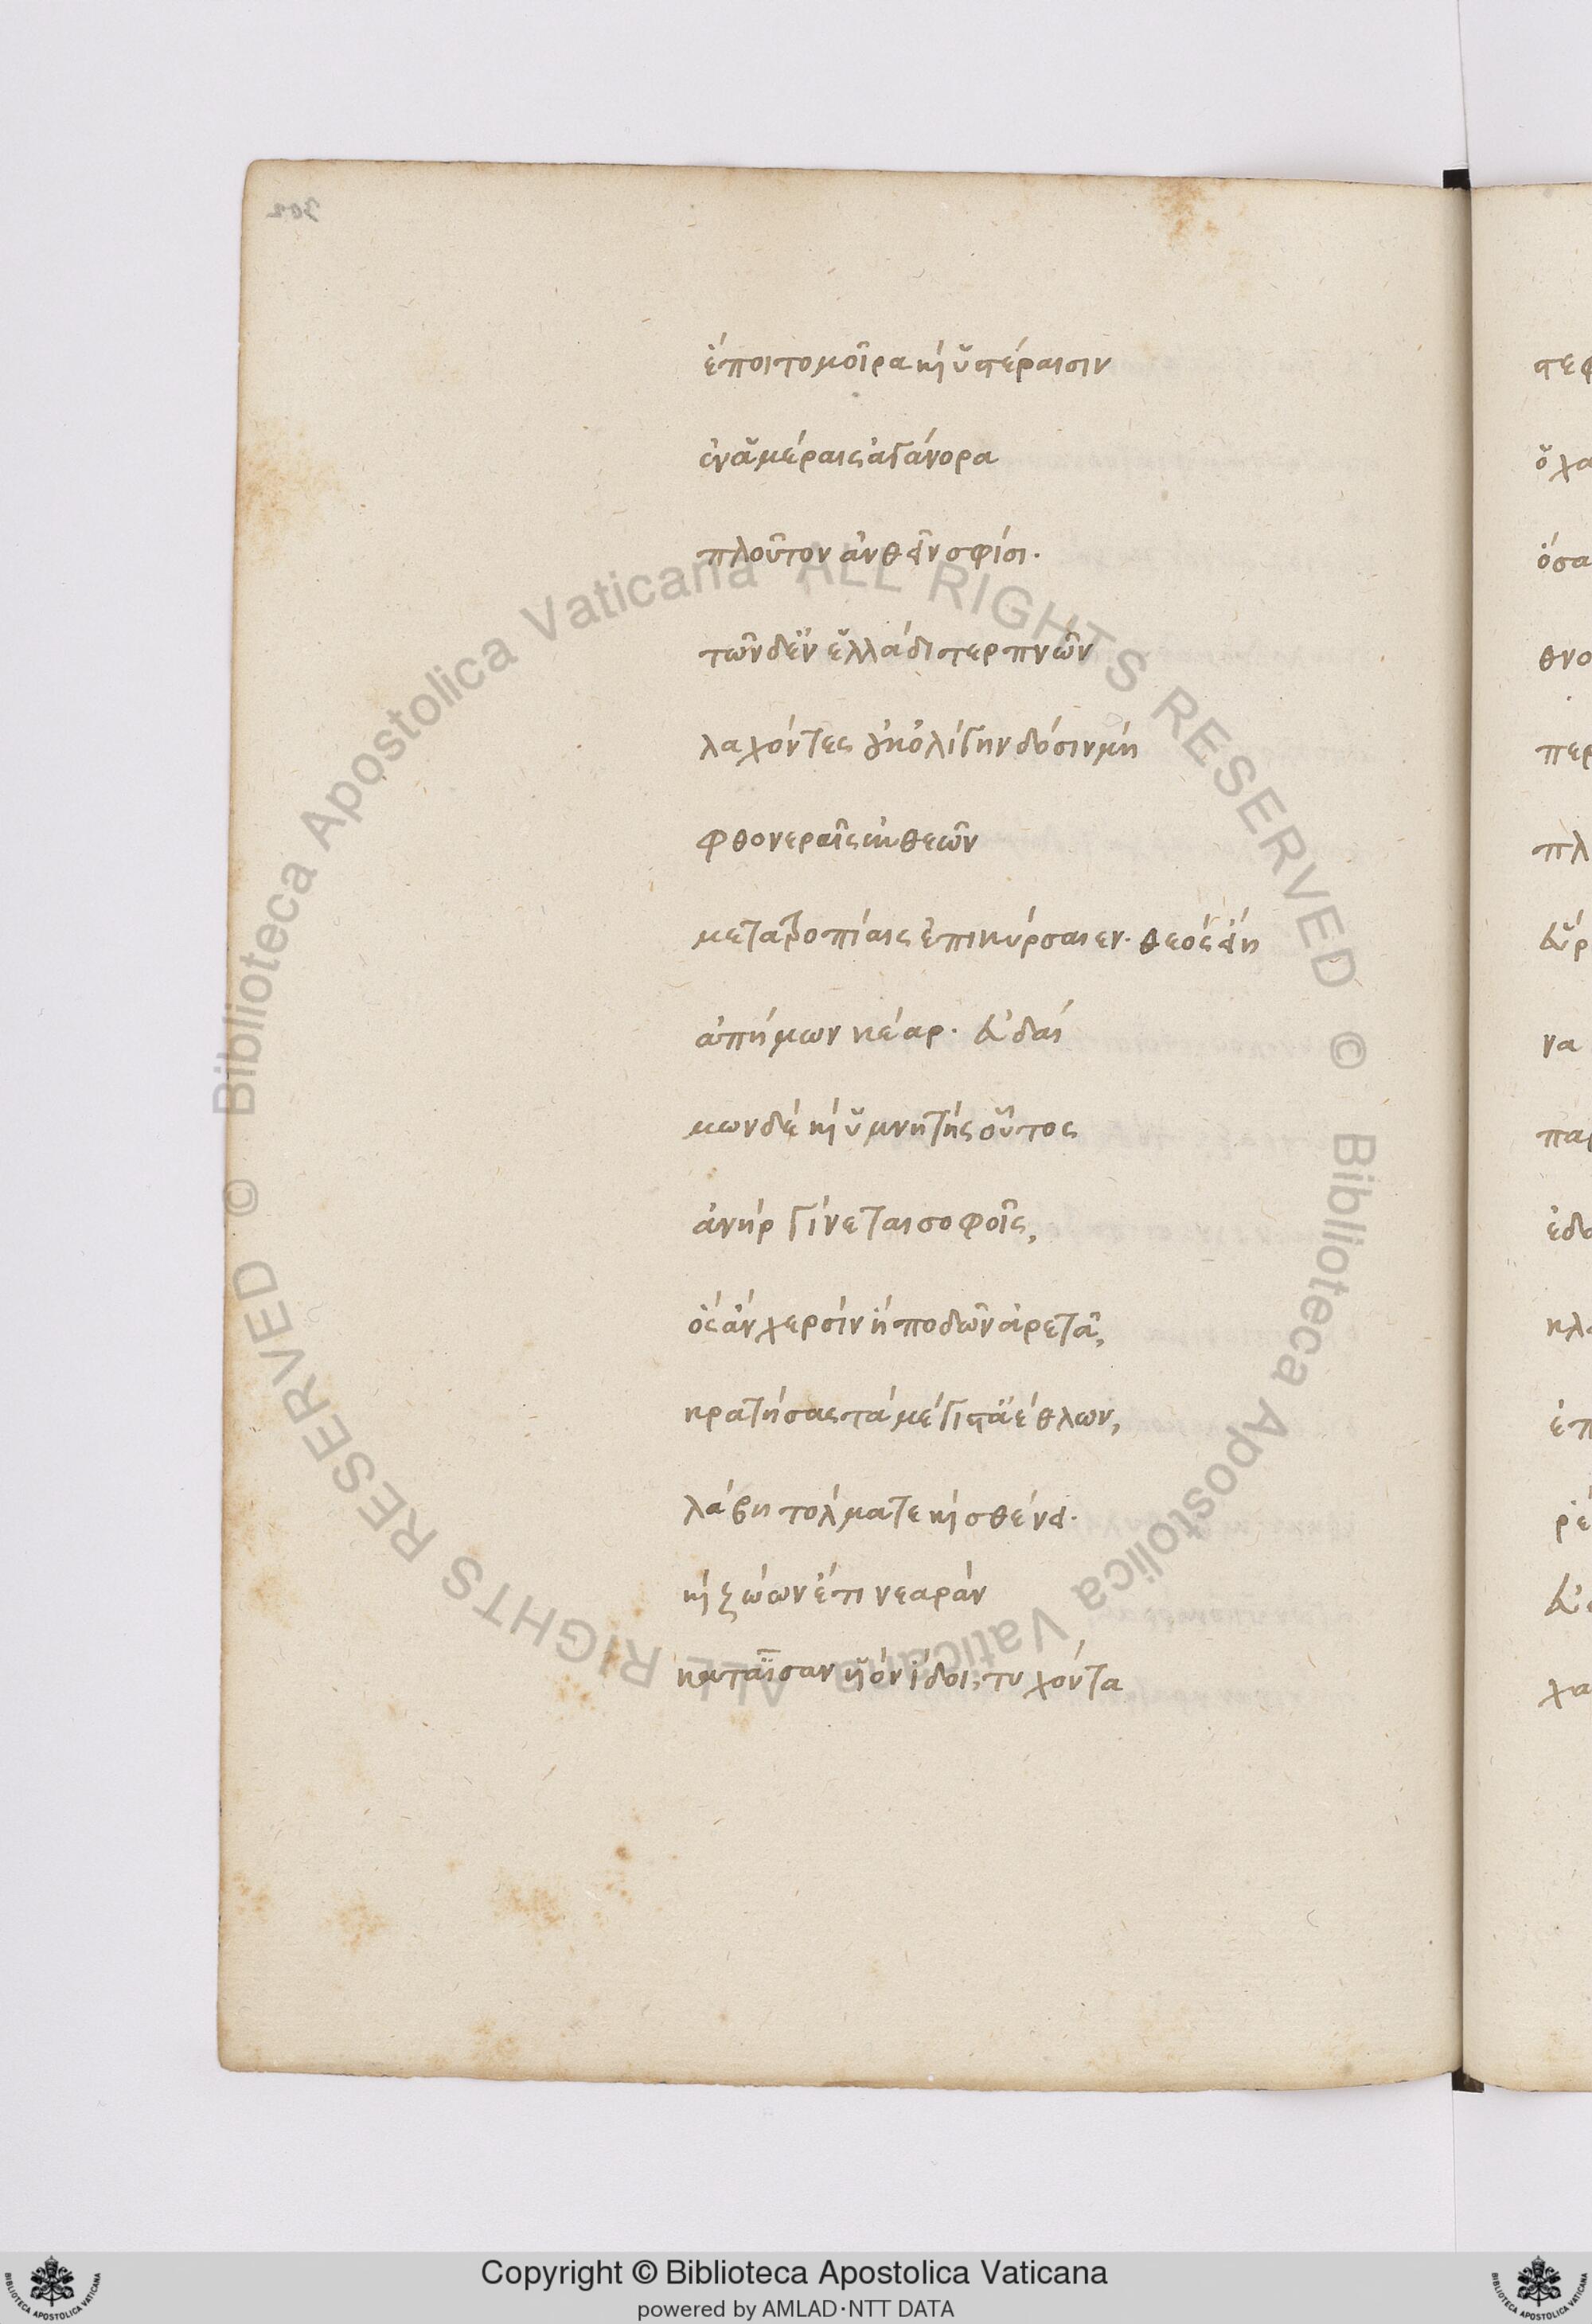 302
ἕποιτο μοῖρα καὶ ὑστέραισιν
ἐν ἁμέραις ἀγάνορα
πλοῦτον ἀνθεῖν σφίσι·
τῶν δ' ἐν ἑλλάδι τερπνῶν
λαχόντες οὐκ ὀλίγην δόσιν μὴ
φθονεραῖς ἐκ θεῶν
μετατροπίαις ἐπικύρσαιεν· θεὸς εἴη
ἀπήμων κέαρ· εὐδαί
μων δὲ καὶ ὑμνητὸς οὗτος
ἀνὴρ γίνεται σοφοῖς,
ὃς ἂν χερσὶν ἢ ποδῶν ἀρετᾷ,
κρατήσας τὰ μέγιστ' ἀέθλων,
λάβῃ τόλμᾳ τε καὶ σθένει·
καὶ ζώων ἔτι νεαρὸν
κατ' αἶσαν υἱὸν ἴδοι, τυχόντα
στεφ
ὅ χα
ὅσα
θνο
περ
πλ
εὕρ
να
παρ
ἔδω
κλα
ἔπ
ῥέ
εὐ
χα
© Biblioteca Apostolica Vaticana ALL RIGHTS RESERVED © Biblioteca Apostolica Vaticana ALL RIGHTS RESERVED
BIBLIOTECA APOSTOLICA VATICANA
Copyright © Biblioteca Apostolica Vaticana
powered by AMLAD·NTT DATA
BIBLIOTECA APOSTOLICA VATICANA